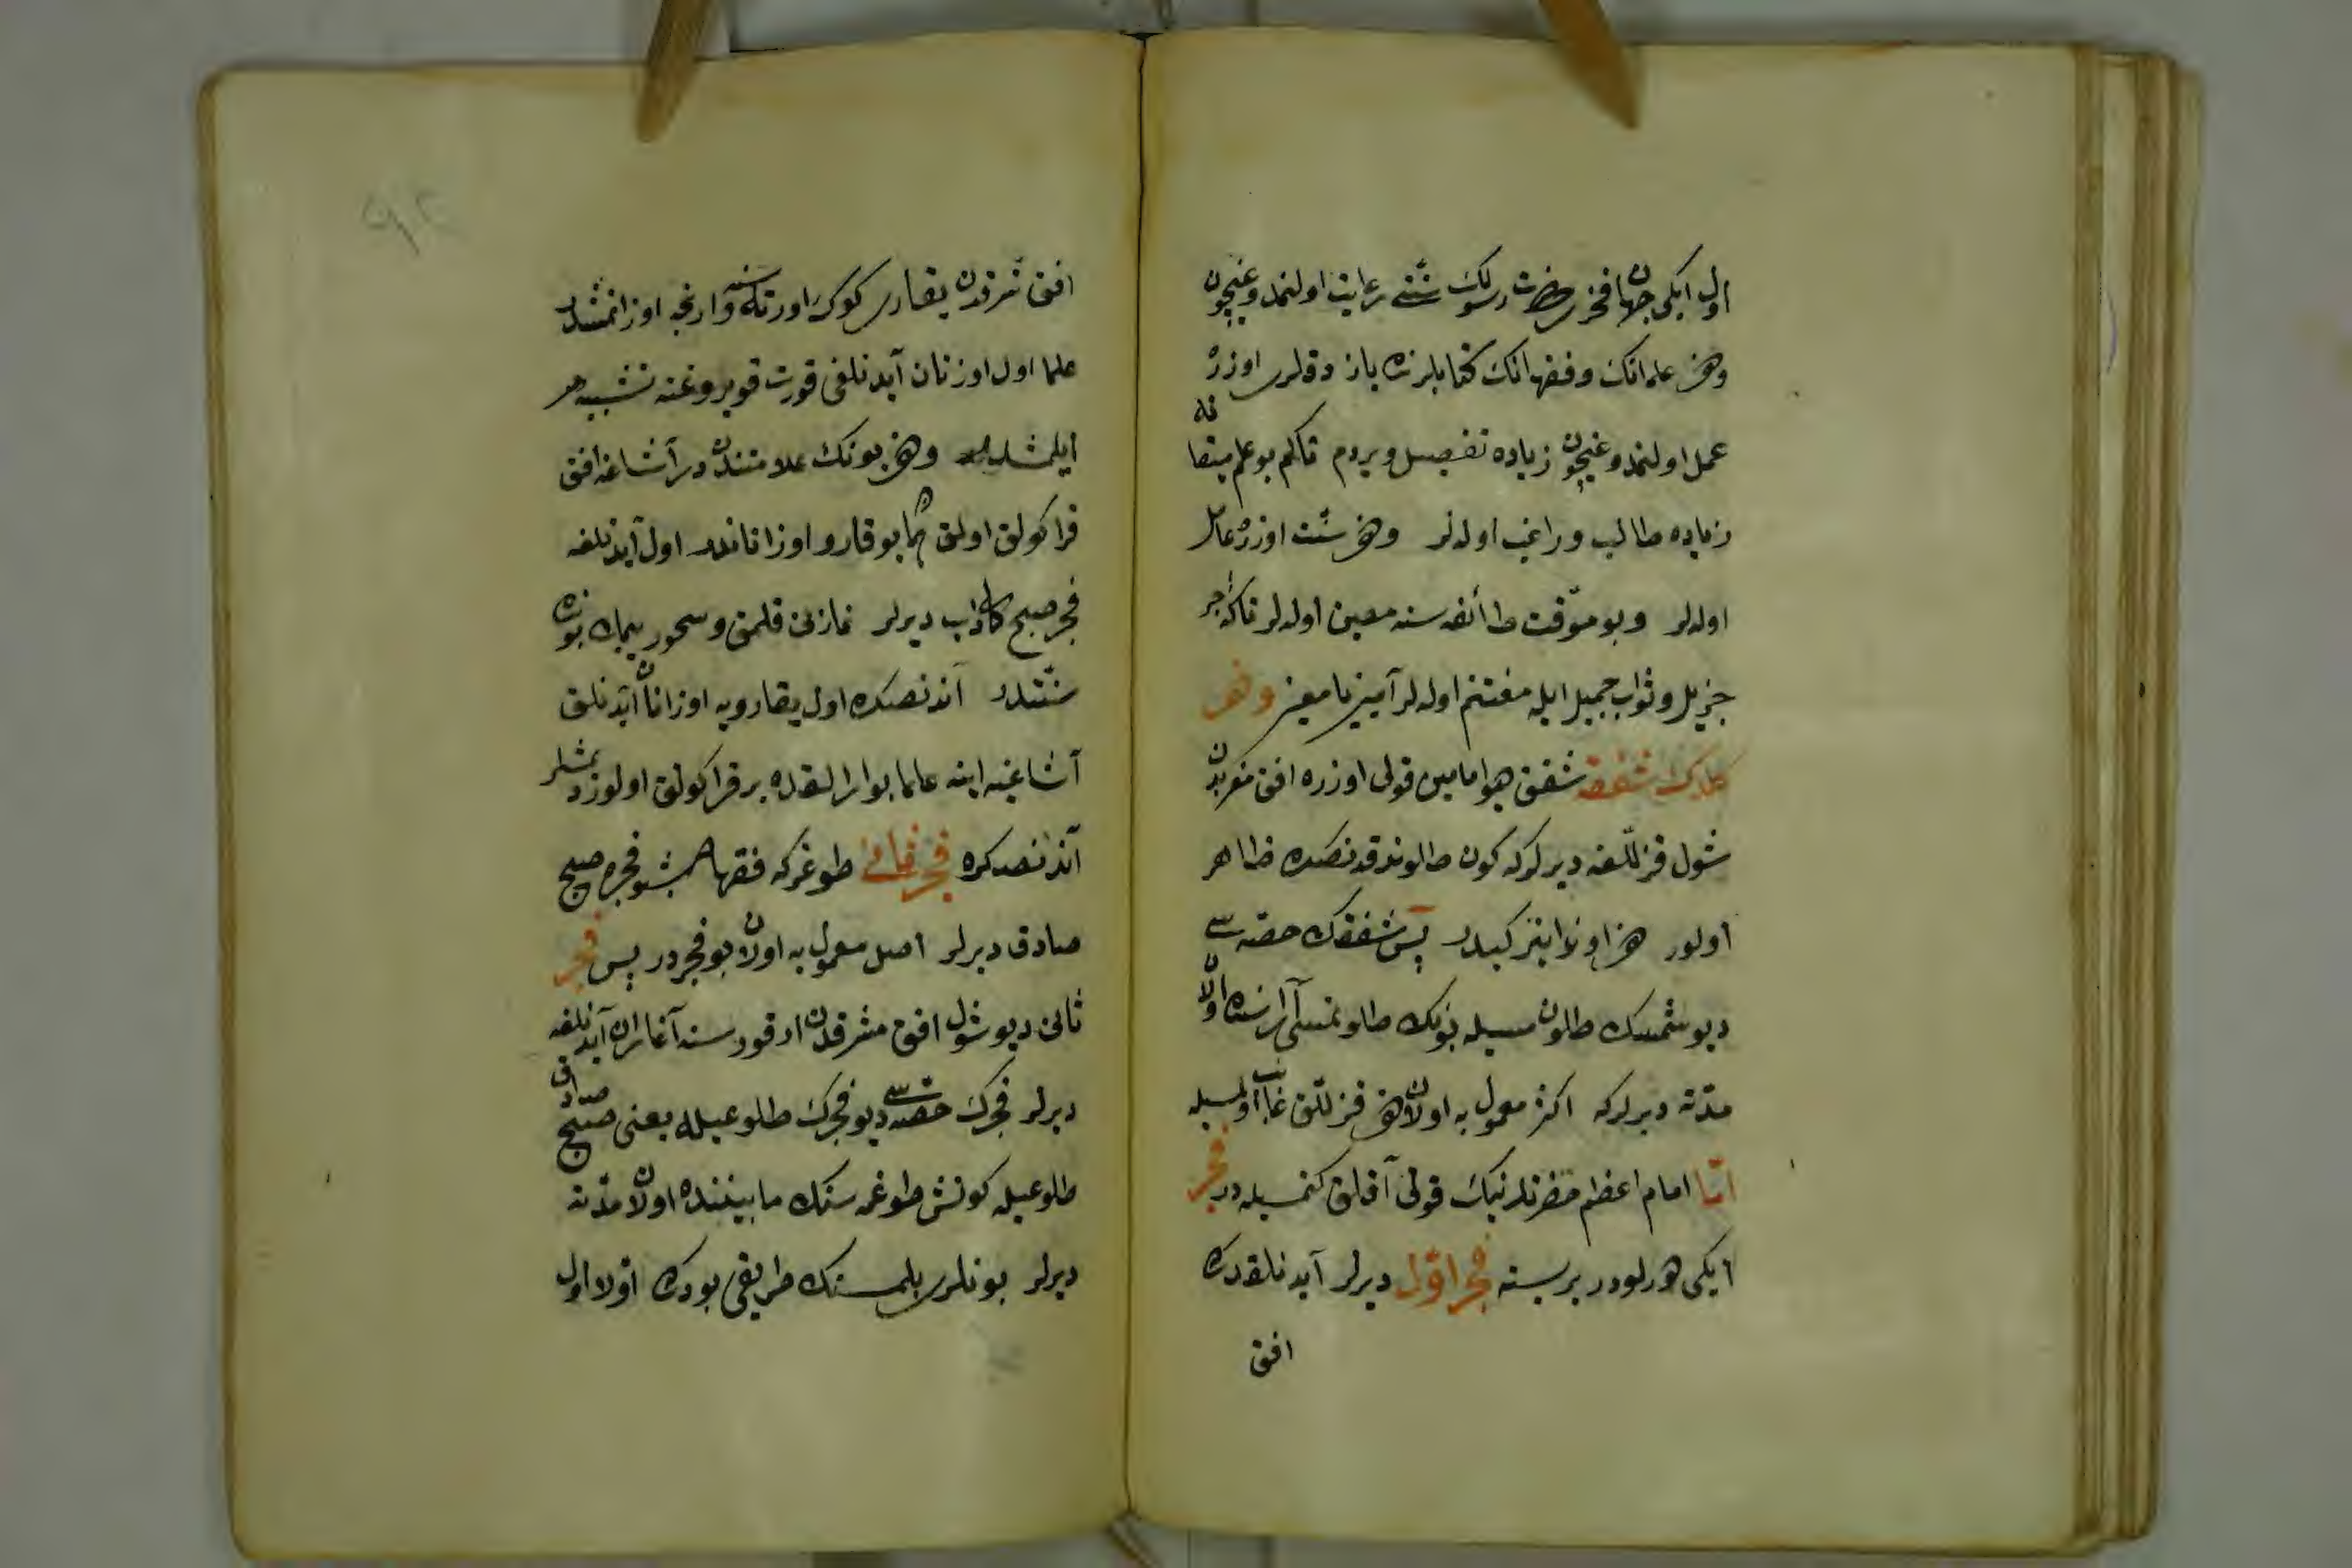 اول ایکی جهان فخری حضرت رسولك سنتی رعایت اولنمدوغیچون
وهم علمانك وفقهانك کتابلرنده یازدقلری اوزره
عمل اولنمدوغیچون زیاده تفصیل ویردم تاکم بو علم میقاته
زیاده طالب وراغب اولەلر وهم سنت اوزره عامل
اولەلر وبو موقت طائفەسنه معین اولەلر تاکه اجر
جزیل وثواب جمیل ایله مغتنم اولەلر آمین یا معین وهم
کلدك شفقه شفق هو امامین قولی اوزره افق مغربدن
شول قزللغه دیرلرکه کون طولوندقدنصکره ظاهر
اولور هم اوند اینر کیدر پس شفقك حصەسی
دیو شمسك طلونمسیله بونك طلونمسی آراسنده اولان
مدته دیرلرکه اکثر معمول به اولان هم قزللق غائب اولمسیله
امّا امام اعظم حضرتلرینك قولی آقلق کتمسیله در فجر
ایکی هورلودر بریسنه فجر اوّل دیرلر آیدنلقدرکه
افق
افق شرقدن یقاری کوك اورتەسنه وارنجه اوزانمشدر
علما اول اوزنان آیدنلغی قورت قویروغنه تشبیه
ایلمشلر وهم بونك علامتندندر آشاغه افق
قراکولق اولق همان یوقارو اوزاناندر اول آیدنلغه
فجر صبح کاذب دیرلر نمازنی قلمق وسحور ییمك بونده
سنّتدر آندنصکره اول یقارویه اوزانان آیدنلق
آشاغیه اینه عالما بو ارالقده بر قراکولق اولور دیمشلر
آندنصکره فجر ثانی طوغرکه فقها شو فجره صبح
صادق دیرلر اصل معمول به اولان بو فجردر پس فجر
ثانی دیو شول افق مشرقدن ارقورسنه آغاران آیدنلغه
دیرلر فجرك حصەسی دیو فجرك طلوعیله یعنی صبح صادق
طلوعیله کونش طوغمەسنك مابیننده اولان مدّته
دیرلر بونلری بلمەسنك طریقی بودرکه اوّلا اول